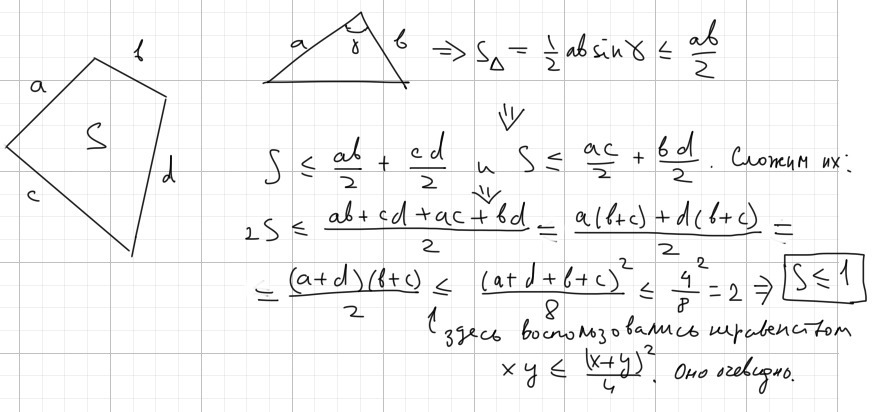 a b S c d
a γ b ⇒ S△ = 1/2 ab sin γ ≤ ab/2
⇓
S ≤ ab/2 + cd/2 и S ≤ ac/2 + bd/2. Сложим их:
⇓
2S ≤ (ab+cd+ac+bd)/2 = (a(b+c)+d(b+c))/2 =
= (a+d)(b+c)/2 ≤ (a+d+b+c)²/8 ≤ 4²/8 = 2 ⇒ S ≤ 1
↑ здесь воспользовались неравенством
xy ≤ (x+y)²/4. Оно очевидно.